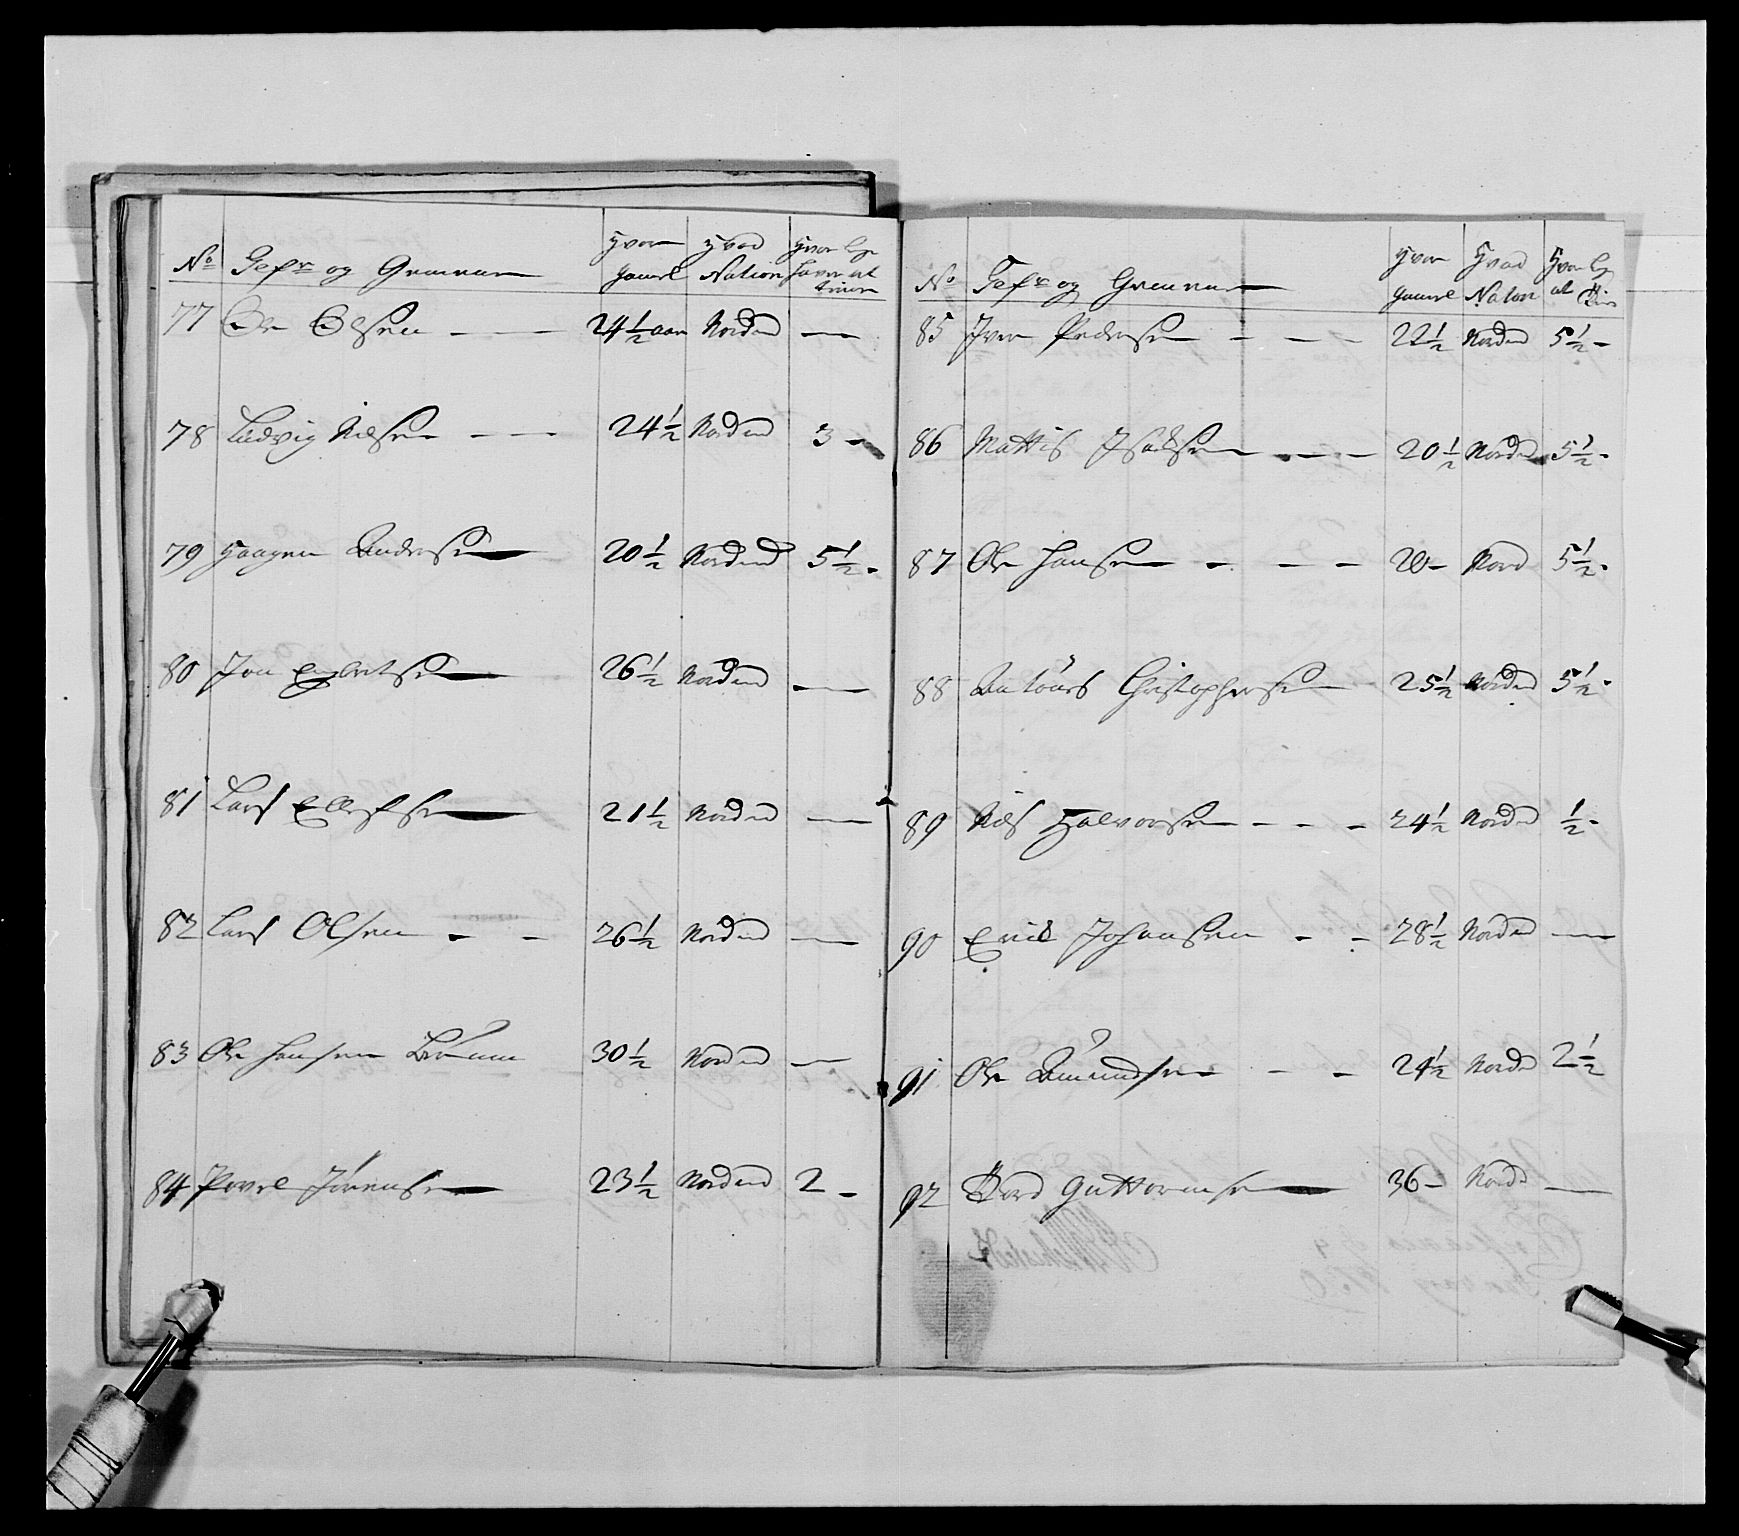 No Gefr og Gemeene Hvor gamel Hvad Nation Hvor lge haver at tiene
77 Ole Olsen — — 24 1/2 aar Nordmd —
78 Ludvig Nilsen — — 24 1/2 Nordmd 3 -
79 Haagen Andersen 20 1/2 Nordmd 5 1/2 -
80 Jon Engbretsen 26 1/2 Nordmd —
81 Lars Ellefsen 21 1/2 Nordmd —
82 Lars Olsen - - 26 1/2 Nordmd —
83 Ole Hansen 30 1/2 Nordmd —
84 Povel Jörensen 23 1/2 Nordmd 2 -
No Gefr og Gemeene Hvor gamel Hvad Nation Hvor lg at
85 Iver Pedersen - - - 22 1/2 Nordmd 5 1/2 -
86 Mattis Isacksen - - - 20 1/2 Nordmd 5 1/2 -
87 Ole Hansen - - - 20 - Nord 5 1/2 -
88 Christophersen 25 1/2 Nordmd 5 1/2 -
89 Nils Halvorsen - - - 24 1/2 Nordmd 1/2 -
90 Erick Johansen - - 28 1/2 Nordmd —
91 Ole Amundsen - - 24 1/2 Nord 2 1/2
92 Bord Guttormsen 36 - Nord —